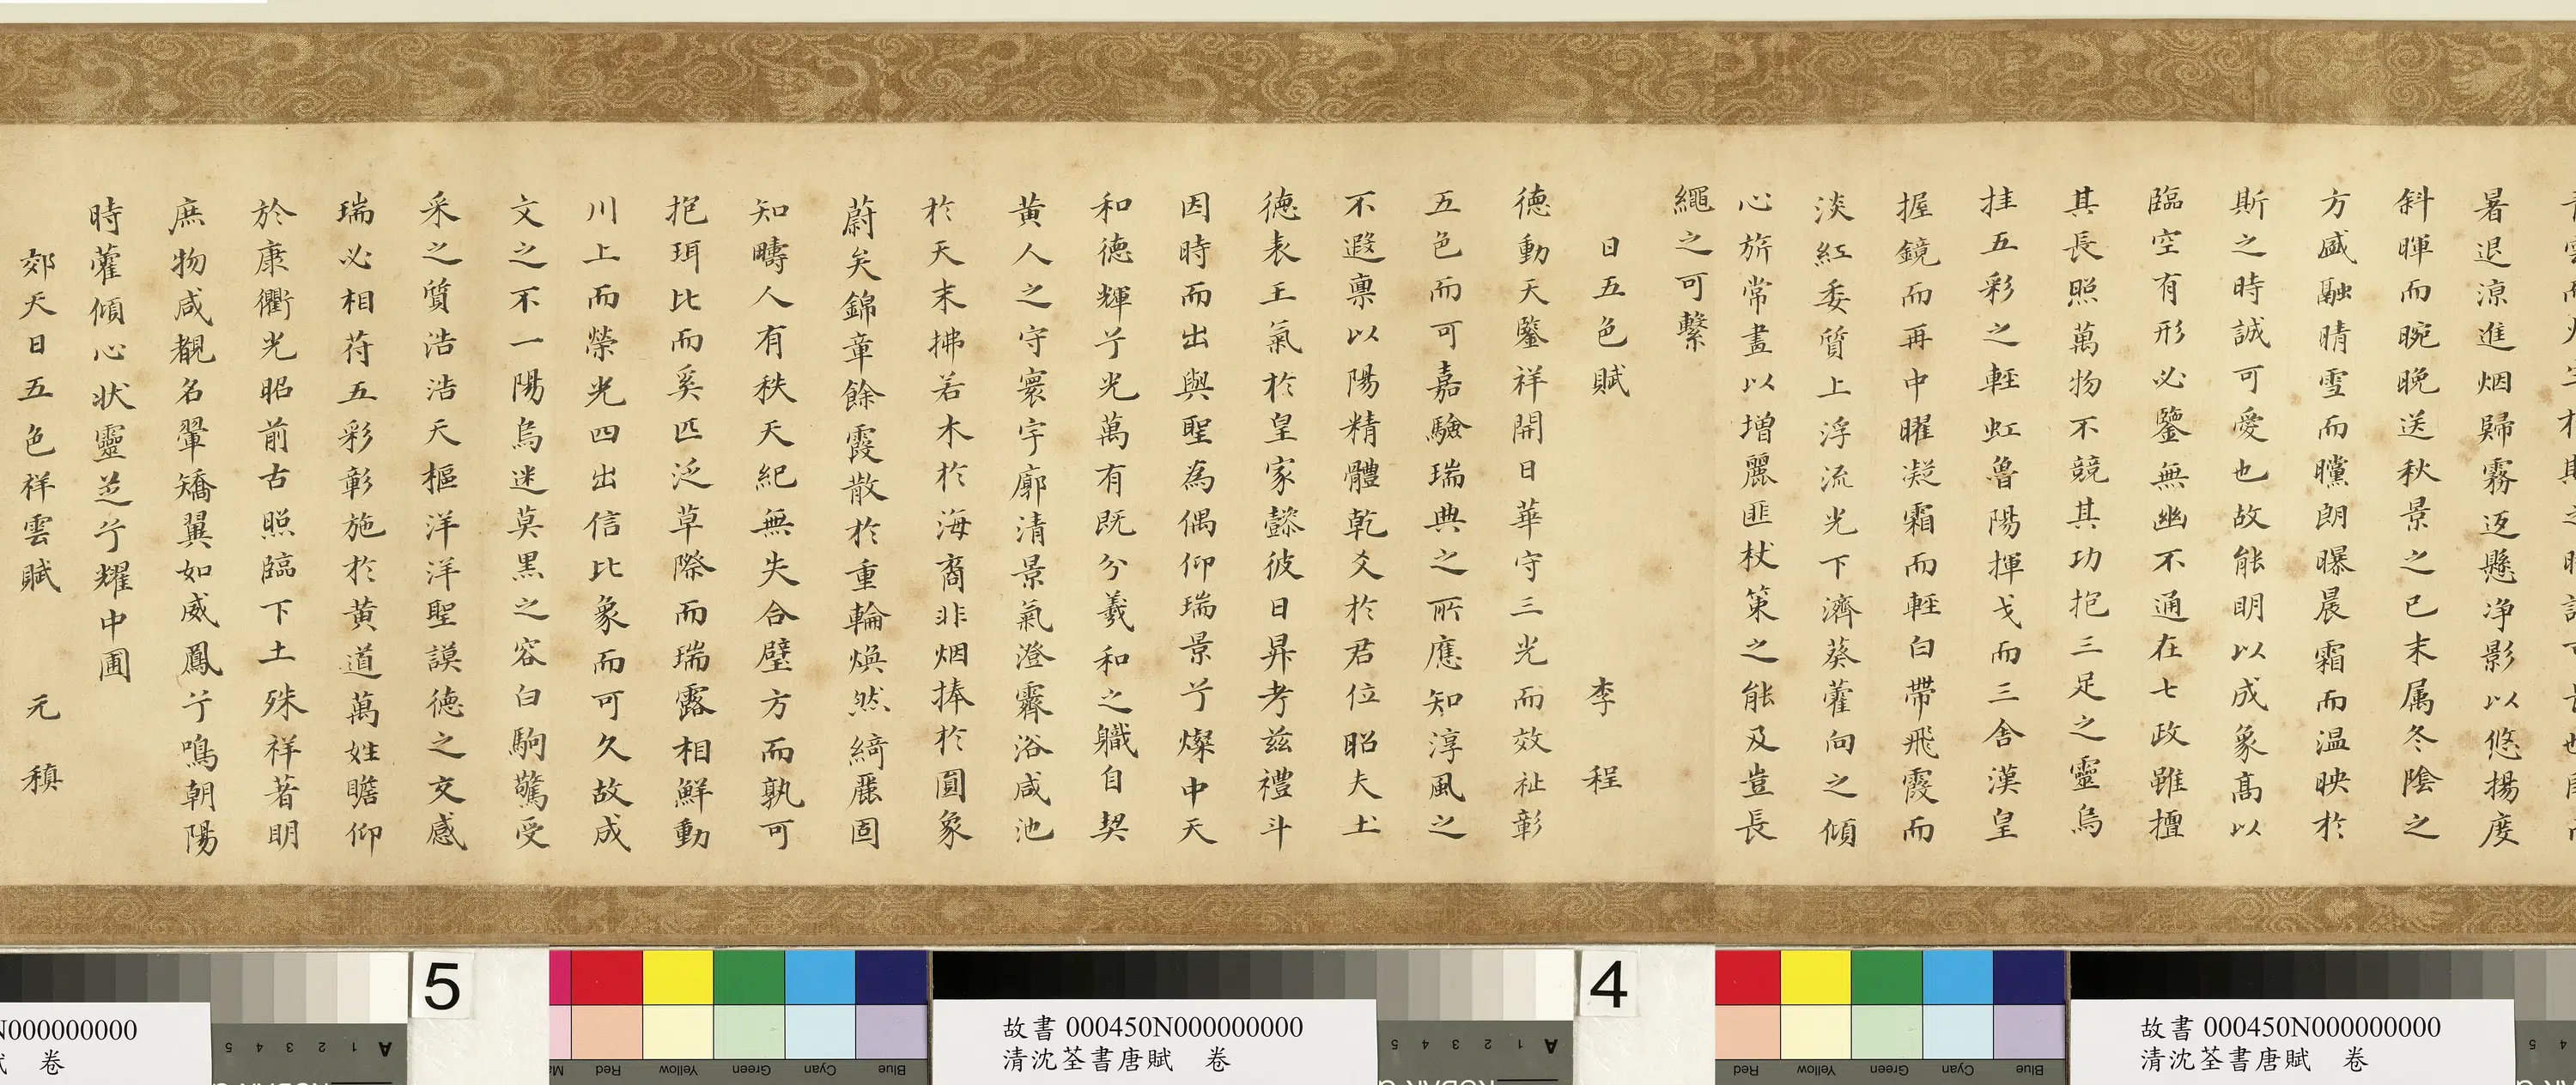 暑退涼進烟歸霧迥懸净影以悠揚度
斜暉而晼晚送秋景之已末属冬陰之
方盛融晴雪而曭朗曝晨霜而温映於
斯之時誠可愛也故能明以成象高以
臨空有形必鑒無幽不通在七政雖擅
其長照萬物不競其功抱三足之靈烏
挂五彩之輕虹魯陽揮戈而三舍漢皇
握鏡而再中曜凝霜而輕白帶飛霞而
淡紅委質上浮流光下濟葵藿向之傾
心旂常畫以增麗匪杖策之能及豈長
繩之可繫
日五色賦 李程
德動天鑒祥開日華守三光而效祉彰
五色而可嘉驗瑞典之所應知淳風之
不遐禀以陽精體乾爻於君位昭夫土
德表王氣於皇家懿彼日昇考茲禮斗
因時而出與聖為偶仰瑞景兮燦中天
和德輝兮光萬有既分羲和之職自契
黄人之守寰宇廓清景氣澄霽浴咸池
於天末拂若木於海裔非烟捧於圓象
蔚矣錦章餘霞散於重輪煥然綺麗固
知疇人有秩天紀無失合璧方而孰可
抱珥比而奚匹泛草際而瑞露相鮮動
川上而榮光四出信比象而可久故成
文之不一陽烏迷莫黑之容白駒驚受
采之質浩浩天樞洋洋聖謨德之交感
瑞必相符五彩彰施於黄道萬姓瞻仰
於康衢光昭前古照臨下土殊祥著明
庶物咸覩名翬矯翼如威鳳兮鳴朝陽
時藿傾心狀靈芝兮耀中圃
郊天日五色祥雲賦 元稹
5
4
N000000000
賦 卷
故書 000450N000000000
清沈荃書唐賦 卷
故書 000450N000000000
清沈荃書唐賦 卷
A 1 2 3 4 5
A 1 2 3 4 5
Red Yellow Green Cyan Blue
Red Yellow Green Cyan Blue